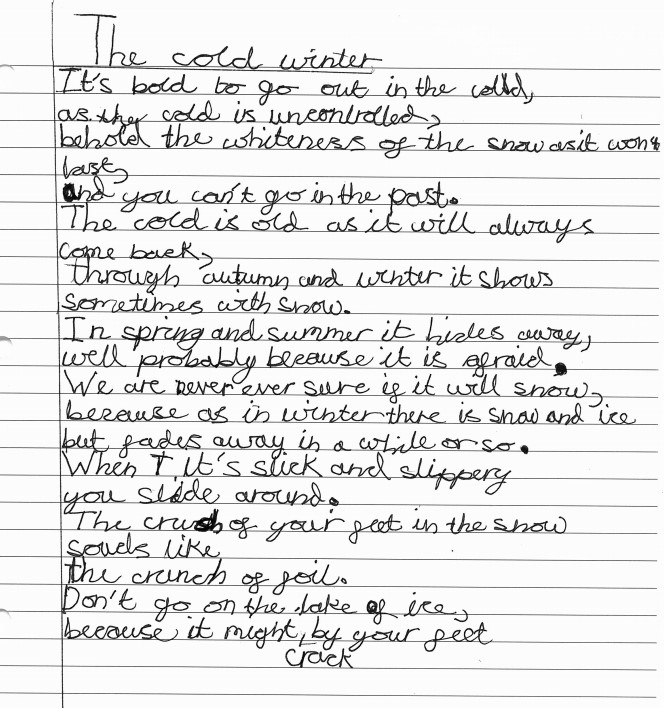 The cold winter
It's bold to go out in the colld,
as they cold is uncontrolled,
behold the whiteness of the snow as it wont
last,
and you can't go in the past.
The cold is old as it will always
come back,
through autumn and winter it shows
sometimes with snow.
In spring and summer it hides away,
well probably because it is afraid.
We are never ever sure if it will snow,
because as in winter there is snow and ice
but fades away in a while or so.
When it's slick and slippery
you slide around.
The crush of your feet in the snow
souds like
the crunch of foil.
Don't go on the lake of ice,
because it might, by your feet
crack